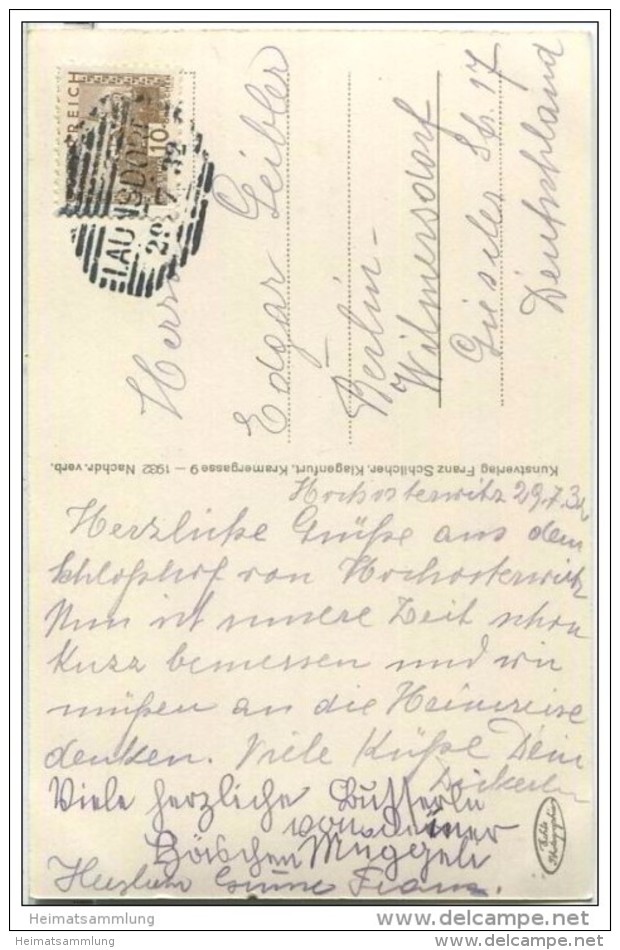 REICH
10
LAUNSDORF
29. 7. 32
Herrn
Edgar Geibler
Berlin-
Wilmersdorf
Gieseler Str. 17
Deutschland
Kunstverlag Franz Schilcher, Klagenfurt, Kramergasse 9 — 1932 Nachdr. verb.
Hochosterwitz 29.7.32
Herzliche Grüße aus dem
Schloßhof von Hochosterwitz
Nun ist unsere Zeit schon
kurz bemessen und wir
müßen an die Heimreise
denken. Viele Küße Dein
Viele herzliche Busserln
von deiner
Häschen Muggeli
Franz.
Heimatsammlung
Heimatsammlung
delcampe.net
delcampe.net